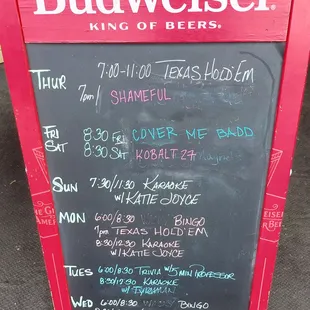 Budweiser
KING OF BEERS.
THUR 7:00-11:00 TEXAS HOLD'EM
7pm SHAMEFUL
FRI 8:30 FRI COVER ME BADD
SAT 8:30 SAT KOBALT 27
SUN 7:30/11:30 KARAOKE
W/ KATIE JOYCE
MON 6:00/8:30 BINGO
7pm TEXAS HOLD'EM
8:30/12:30 KARAOKE
W/ KATIE JOYCE
TUES 6:00/8:30 TRIVIA W/ 5 MIN PROFESSOR
8:30/12:30 KARAOKE
W/
WED 6:00/8:30 BINGO